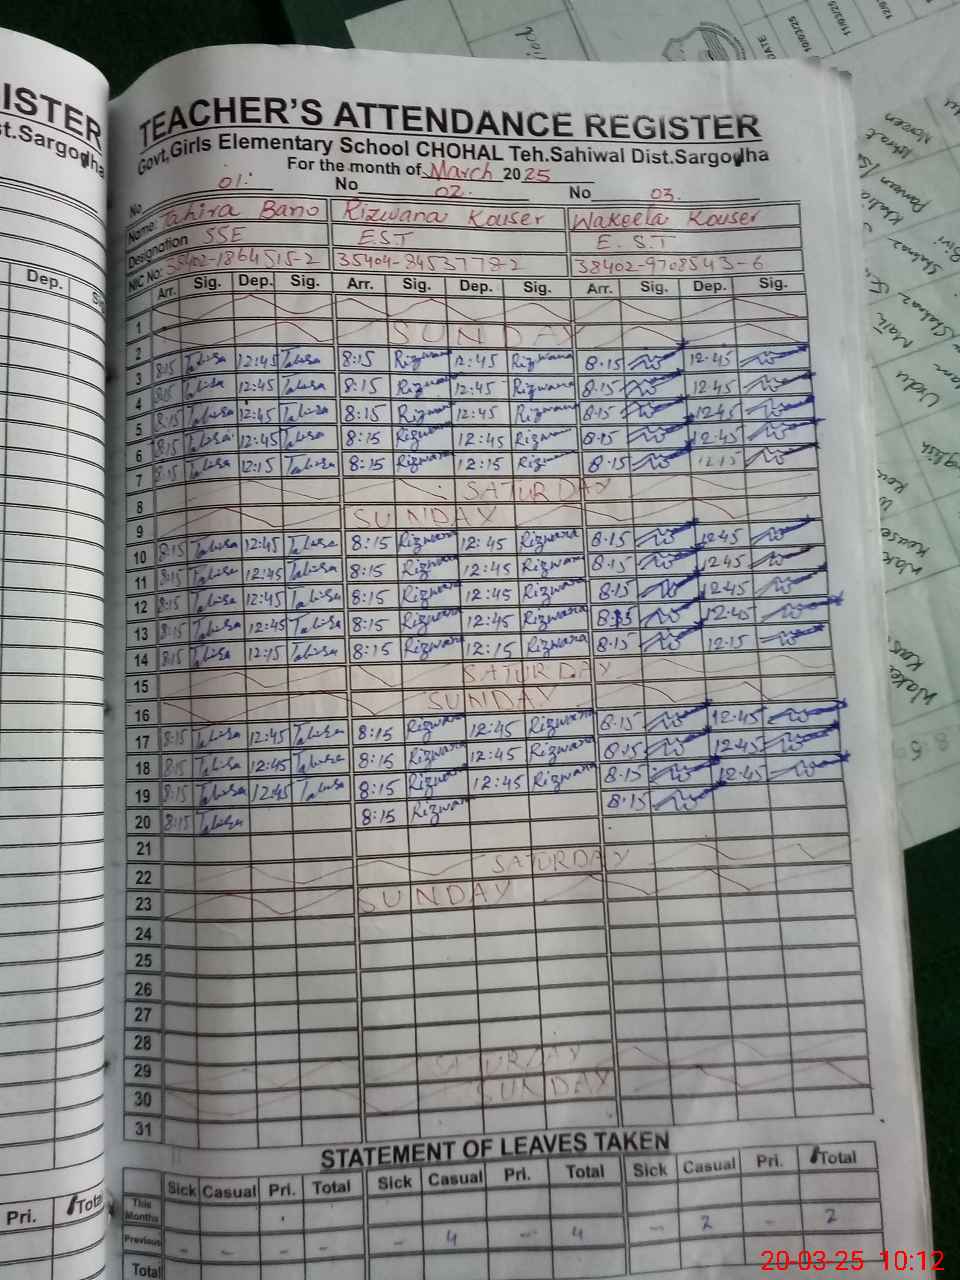 TEACHER'S ATTENDANCE REGISTER
Govt,Girls Elementary School CHOHAL Teh.Sahiwal Dist.Sargodha
For the month of March 2025
No 01. No 02. No 03.
Name: Tahira Bano Rizwana Kouser Wakeela Kouser
Designation SSE E.S.T E.S.T
NIC No: 35402-1864515-2 35404-8453777-2 38402-9708543-6
Arr. Sig. Dep. Sig. Arr. Sig. Dep. Sig. Arr. Sig. Dep. Sig.
1
2 SUNDAY
3 8:15 Tahira 12:45 Tahira 8:15 Rizwana 12:45 Rizwana 8:15 12:45
4 8:15 Tahira 12:45 Tahira 8:15 Rizwana 12:45 Rizwana 8:15 12:45
5 8:15 Tahira 12:45 Tahira 8:15 Rizwana 12:45 Rizwana 8:15 12:45
6 8:15 Tahira 12:45 Tahira 8:15 Rizwana 12:45 Rizwana 8:15 12:45
7 8:15 Tahira 12:15 Tahira 8:15 Rizwana 12:15 Rizwana 8:15 12:15
8 SATURDAY
9 SUNDAY
10 8:15 Tahira 12:45 Tahira 8:15 Rizwana 12:45 Rizwana 8:15 12:45
11 8:15 Tahira 12:45 Tahira 8:15 Rizwana 12:45 Rizwana 8:15 12:45
12 8:15 Tahira 12:45 Tahira 8:15 Rizwana 12:45 Rizwana 8:15 12:45
13 8:15 Tahira 12:45 Tahira 8:15 Rizwana 12:45 Rizwana 8:15 12:45
14 8:15 Tahira 12:15 Tahira 8:15 Rizwana 12:15 Rizwana 8:15 12:15
15 SATURDAY
16 SUNDAY
17 8:15 Tahira 12:45 Tahira 8:15 Rizwana 12:45 Rizwana 8:15 12:45
18 8:15 Tahira 12:45 Tahira 8:15 Rizwana 12:45 Rizwana 8:15 12:45
19 8:15 Tahira 12:45 Tahira 8:15 Rizwana 12:45 Rizwana 8:15 12:45
20 8:15 Tahira 8:15 Rizwana 8:15
21
22 SATURDAY
23 SUNDAY
24
25
26
27
28
29 SATURDAY
30 SUNDAY
31
STATEMENT OF LEAVES TAKEN
Sick Casual Pri. Total Sick Casual Pri. Total Sick Casual Pri. Total
This Months
Previous - - - - - 4 - 4 - 2 - 2
Total
ISTER
st.Sargodha
Dep.
Pri. Total
DATE 10/03/25 11/03/25 12/03/25
Urdu
Math
20-03-25 10:12